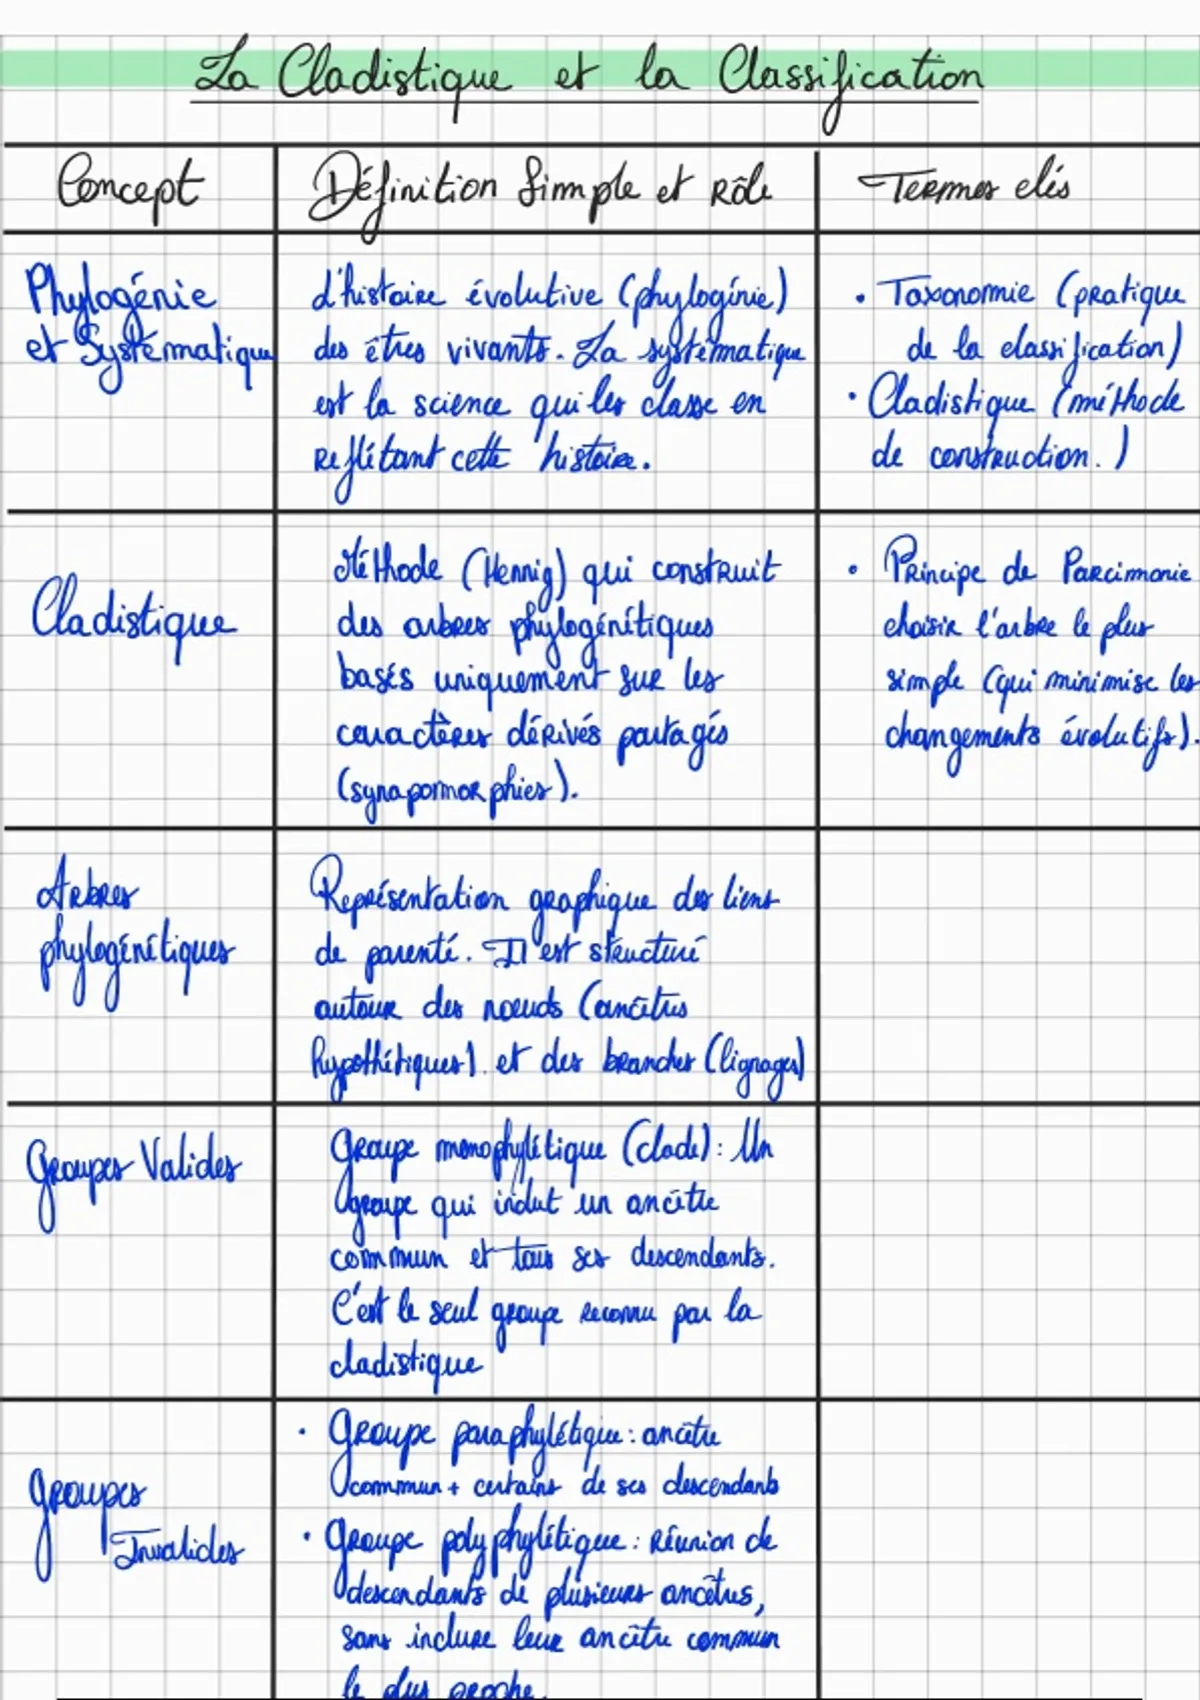 La Cladistique et la Classification
Concept
Définition Simple et Rôle
Termes clés
Phylogénie
et Systématique
L'histoire évolutive (phylogénie)
des êtres vivants. La systématique
est la science qui les classe en
reflétant cette histoire.
• Taxonomie (pratique
de la classification)
• Cladistique (méthode
de construction.)
Cladistique
Méthode (Hennig) qui construit
des arbres phylogénétiques
basés uniquement sur les
caractères dérivés partagés
(synapomorphies).
• Principe de Parcimonie
choisir l'arbre le plus
simple (qui minimise les
changements évolutifs).
Arbres
phylogénétiques
Représentation graphique des liens
de parenté. Il est structuré
autour des nœuds (ancêtres
hypothétiques) et des branches (lignages)
Groupes Valides
Groupe monophylétique (clade) : Un
groupe qui inclut un ancêtre
commun et tous ses descendants.
C'est le seul groupe reconnu par la
cladistique
Groupes
Invalides
• Groupe paraphylétique : ancêtre
commun + certains de ses descendants
• Groupe polyphylétique : Réunion de
descendants de plusieurs ancêtres,
sans inclure leur ancêtre commun
le plus proche.